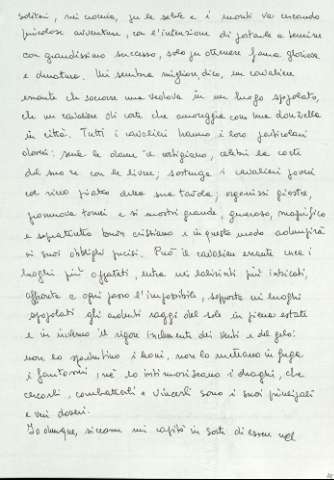 solitari, nei crocevia, su le selve e i monti va cercando
pericolose avventure, con l'intenzione di portarle a termine
con grandissimo successo, solo per ottenere fama gloriosa
e duratura. Mi sembra migliore dico, un cavaliere
errante che soccorre una vedova in un luogo spopolato,
che un cavaliere di corte che amoreggia con una donzella
in città. Tutti i cavalieri hanno i loro particolari
doveri: serva le dame il cortigiano, celebri la corte
del suo re con le livree; sostenga i cavalieri poveri
col ricco piatto della sua tavola; organizzi giostre,
promuova tornei e si mostri grande, generoso, magnifico
e soprattutto buon cristiano e in questo modo adempirà
ai suoi obblighi precisi. Però il cavaliere errante cerca i
luoghi più appartati, entra nei labirinti più intricati,
affronta a ogni passo l'impossibile, sopporta nei luoghi
spopolati gli ardenti raggi del sole in piena estate
e in inverno il rigore inclemente dei venti e del gelo:
non lo spaventino i leoni, non lo mettano in fuga
i fantasmi, né lo intimoriscano i draghi, che
cercarli, combatterli e vincerli sono i suoi principali
e veri doveri.
Io dunque, siccome mi capitò in sorte di essere nel